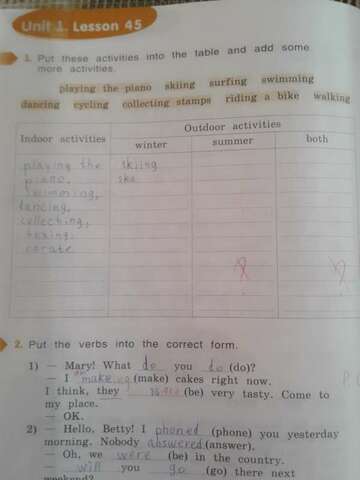 Unit 1. Lesson 45
1. Put these activities into the table and add some
more activities.
playing the piano skiing surfing swimming
dancing cycling collecting stamps riding a bike walking
Indoor activities Outdoor activities
winter summer both
playing the skiing
piano, ska
swimming,
dancing,
collecting,
boxing
carate
2. Put the verbs into the correct form.
1) — Mary! What do you do (do)?
— I make (make) cakes right now.
I think, they (be) very tasty. Come to
my place.
— OK.
2) — Hello, Betty! I phoned (phone) you yesterday
morning. Nobody answered (answer).
— Oh, we were (be) in the country.
— will you go (go) there next
weekend?